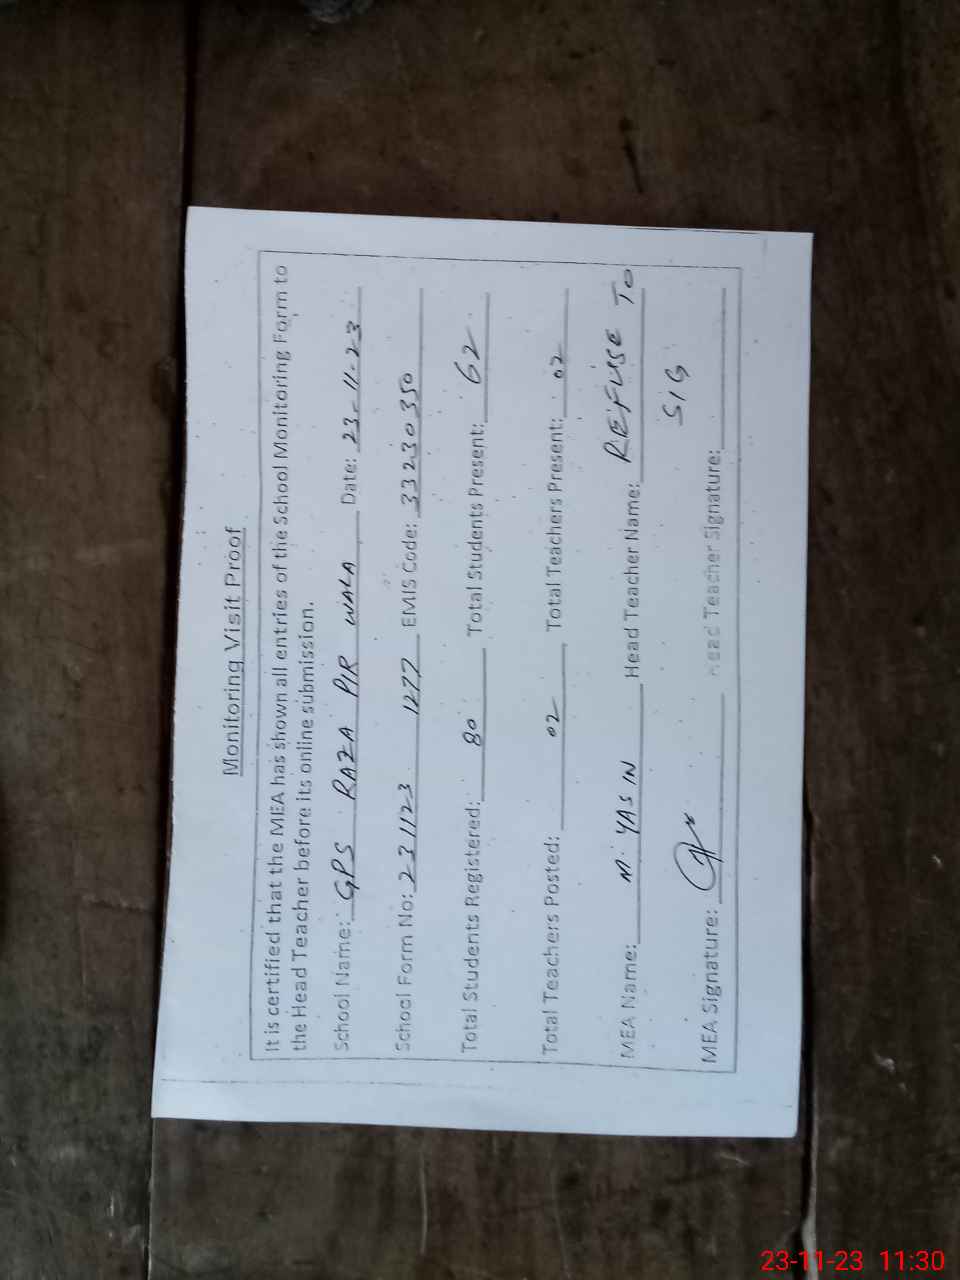 Monitoring Visit Proof
It is certified that the MEA has shown all entries of the School Monitoring Form to
the Head Teacher before its online submission.
School Name: GPS RAZA PIR WALA Date: 23-11-23
School Form No: 231123 1277 EMIS Code: 33230350
Total Students Registered: 80 Total Students Present: 62
Total Teachers Posted: 02 Total Teachers Present: 02
MEA Name: M. YASIN Head Teacher Name: REFUSE TO
SIG
MEA Signature: Head Teacher Signature:
23-11-23 11:30